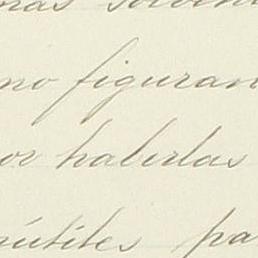 mas
no figuran
or haberlas
inútiles pa